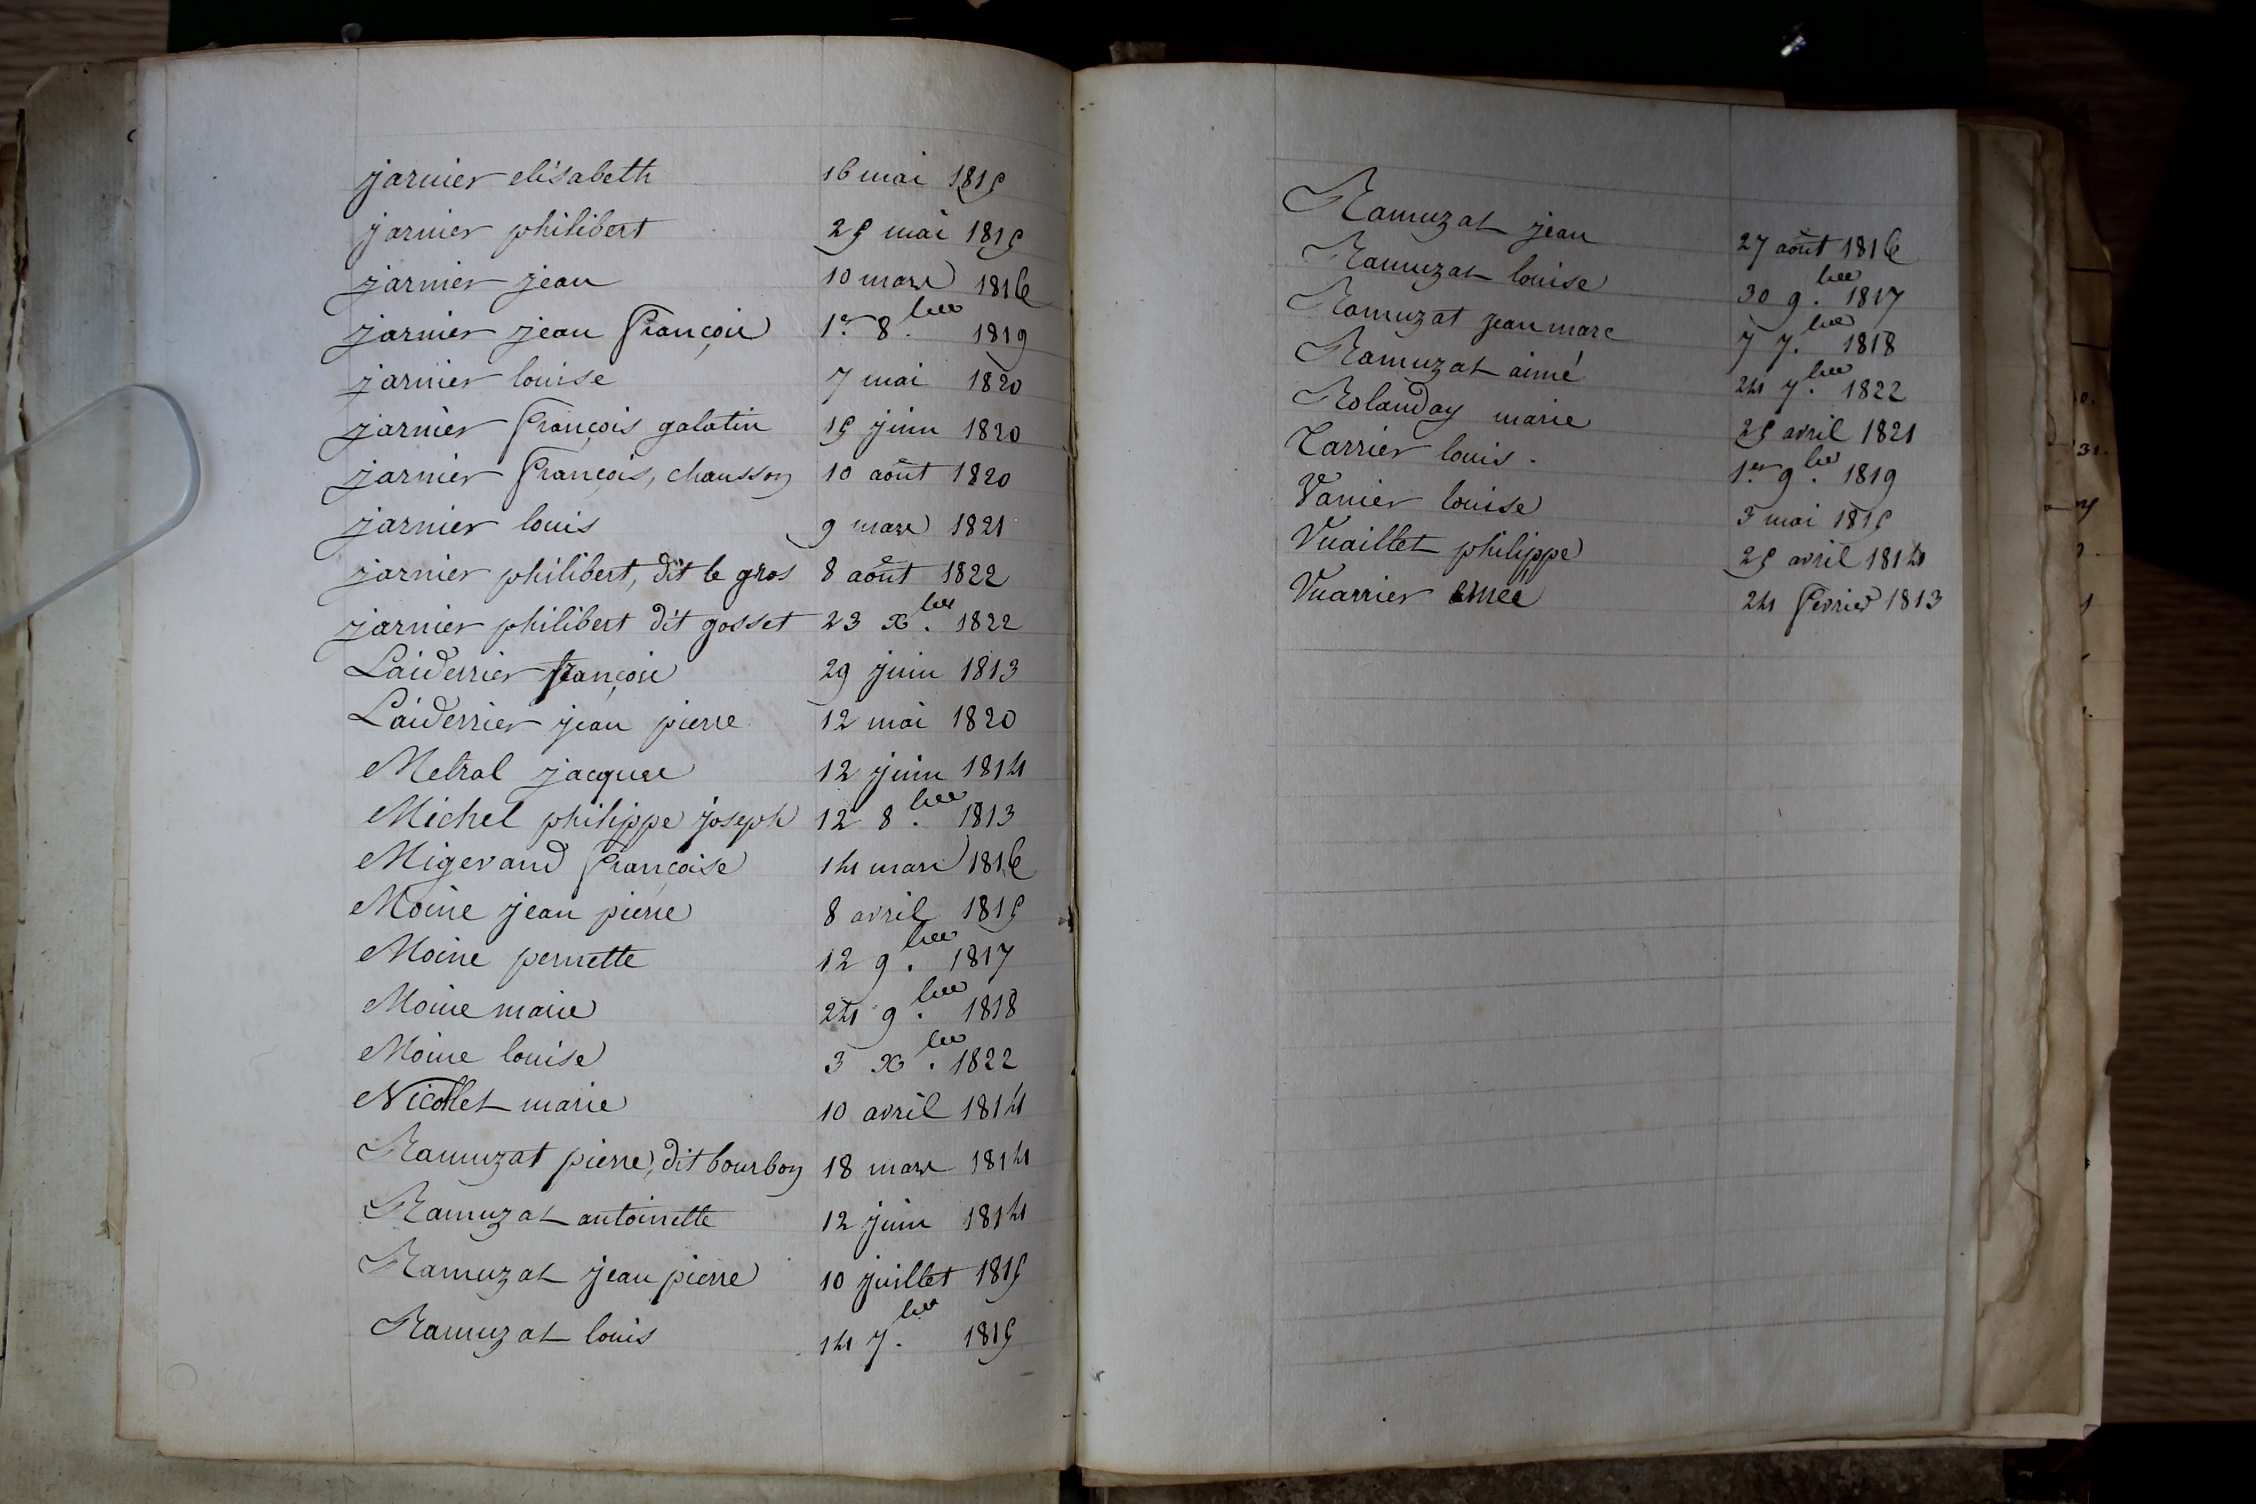 jarnier elisabeth 16 mai 1815
jarnier philibert 25 mai 1815
jarnier jean 10 mars 1816
jarnier jean françois 1er 8.bre 1819
jarnier louise 7 mai 1820
jarnier françois galatin 15 juin 1820
jarnier françois, chausson 10 août 1820
jarnier louis 9 mars 1821
jarnier philibert, dit le gros 8 août 1822
jarnier philibert dit gosset 23 x.bre 1822
Laiderrier françois 29 juin 1813
Laiderrier jean pierre 12 mai 1820
Metral jacques 12 juin 1814
Michel philippe joseph 12 8.bre 1813
Migevand françoise 14 mars 1816
Moine jean pierre 8 avril 1815
Moine pernette 12 9.bre 1817
Moine marie 24 9.bre 1818
Moine louise 3 x.bre 1822
Nicollet marie 10 avril 1814
Ramuzat pierre, dit bourbon 18 mars 1814
Ramuzat antoinette 12 juin 1814
Ramuzat jean pierre 10 juillet 1815
Ramuzat louis 14 7.bre 1815
Ramuzat jean 27 août 1816
Ramuzat louise 30 9.bre 1817
Ramuzat jean marc 7 7.bre 1818
Ramuzat aimé 24 7.bre 1822
Rolanday marie 25 avril 1821
Tarrier louis. 1er 9.bre 1819
Vanier louise 3 mai 1815
Vuaillet philippe 25 avril 1814
Vuarrier 24 fevrier 1813